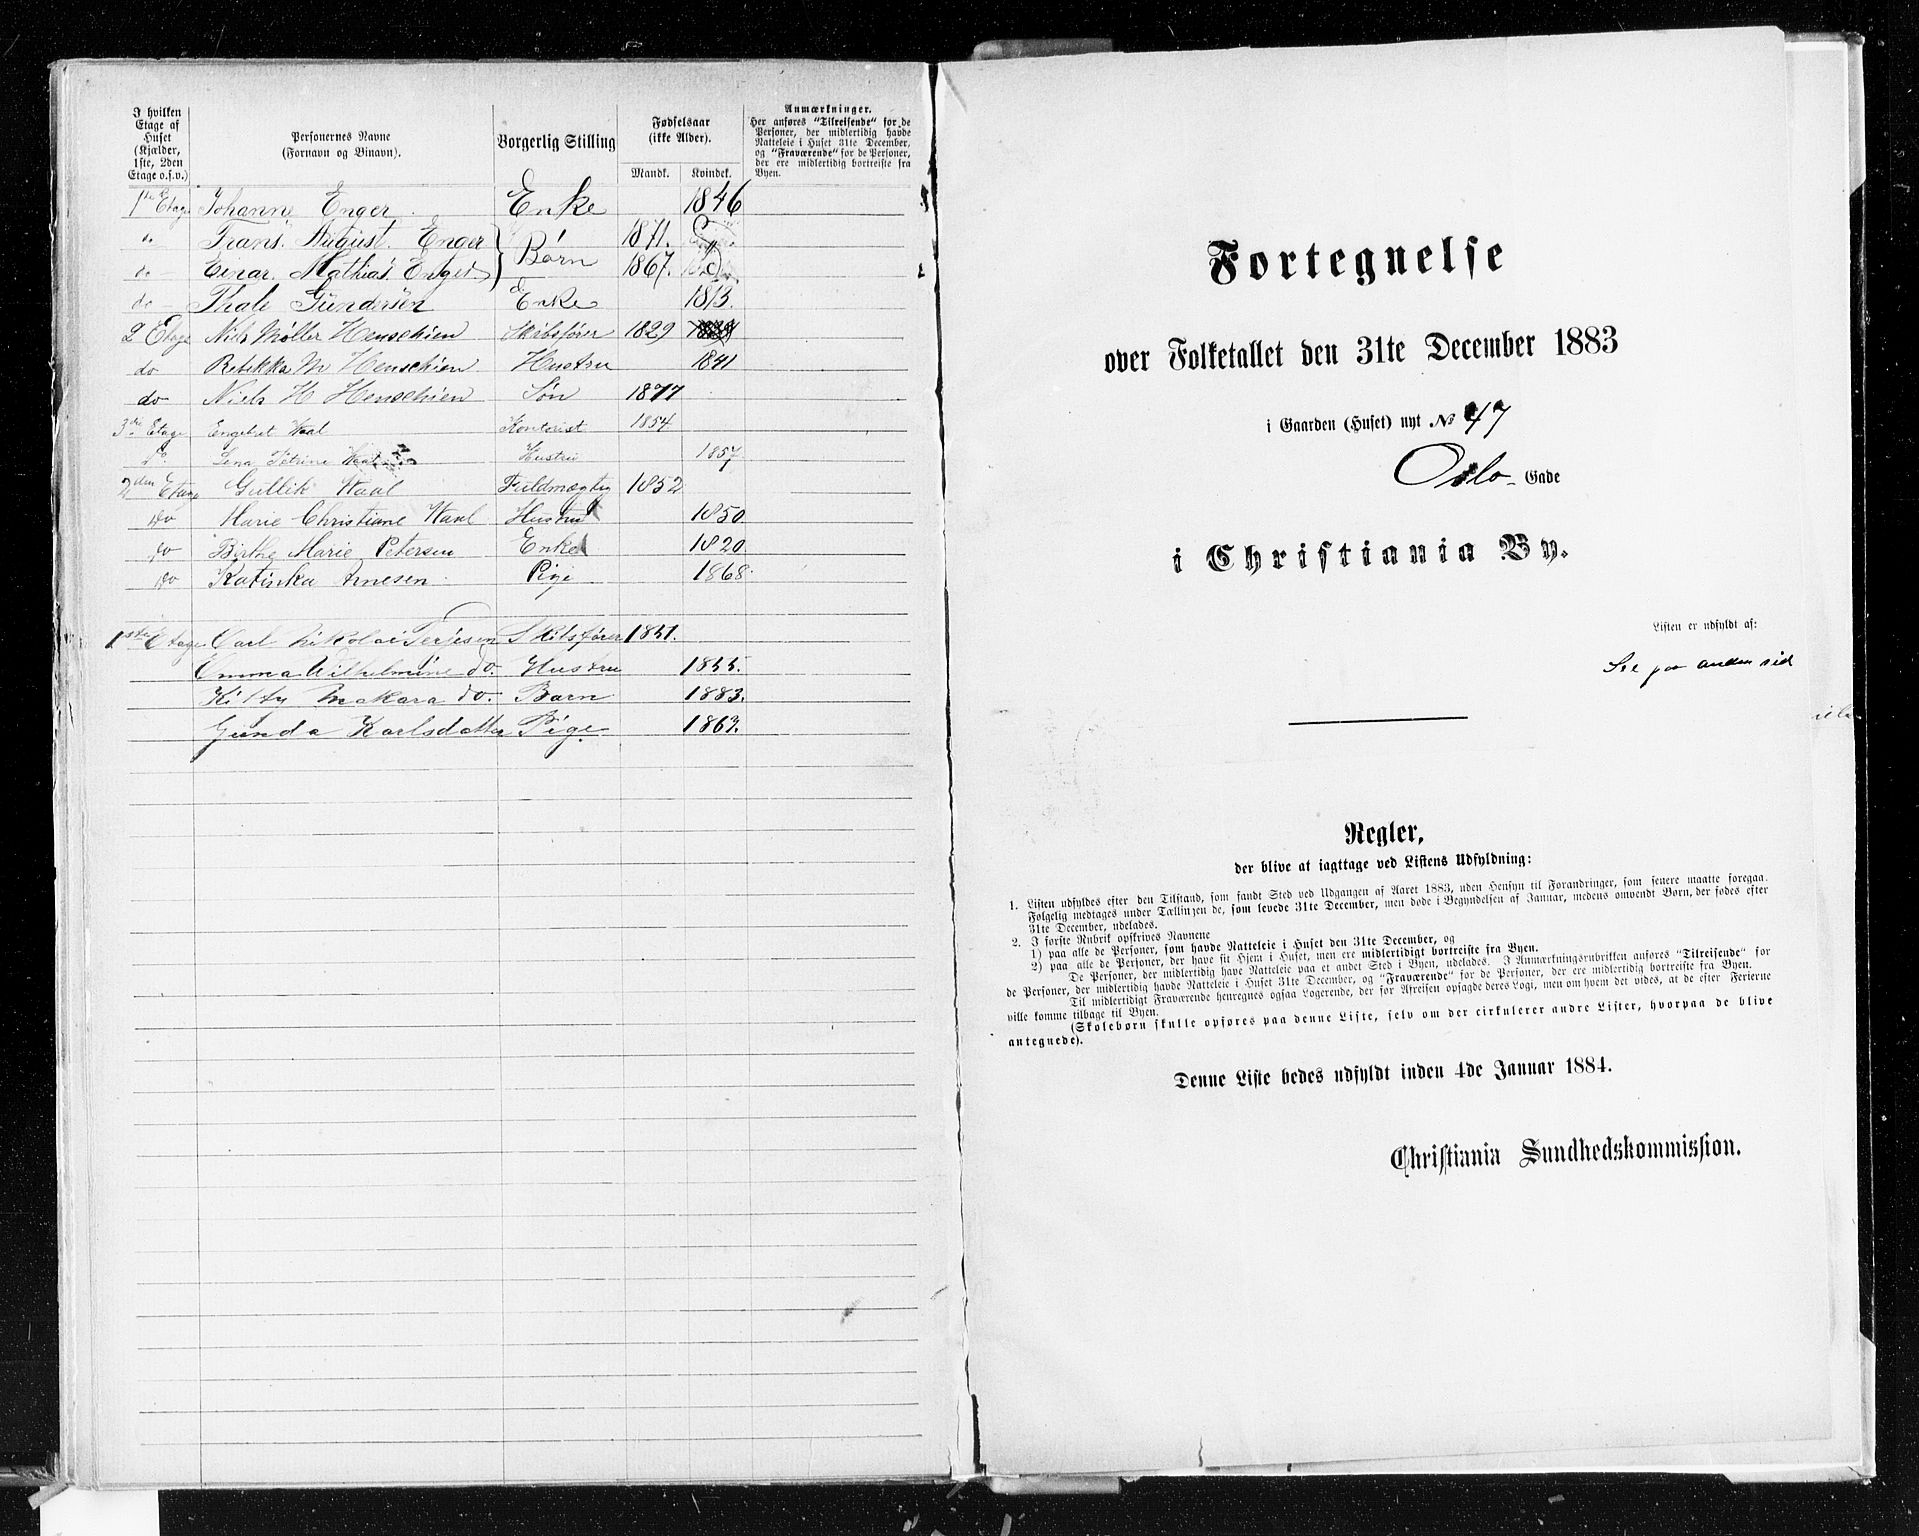 I hvilken Etage af Huset (Kjælder, 1ste, 2den Etage o.s.v.) | Personernes Navne (Fornavn og Binavn). | Borgerlig Stilling | Fødselsaar (ikke Alder). Mandk. Kvindek. | Anmærkninger. Her anføres "Tilreisende" for de Personer, der midlertidig havde Natteleie i Huset 31te December, og "Fraværende" for de Personer, der ere midlertidig bortreiste fra Byen.
1ste Etage Johanne Enger Enke 1846
do Frans August Enger Børn 1871.
do Einar Mathias Enger 1867.
do Thale Gundersen Enke 1813.
2 Etage Niels Møller Henschien Skibsfører 1829
do Rebekka M Henschien Hustru 1841
do Niels H Henschien Søn 1877
3die Etage Engebret Waal Kontorist 1854
do Lena Petrine Waal Hustru 1857
2den Etage Gullik Waal Fuldmægtig 1852
do Marie Christiane Waal Hustru 1850
do Birthe Marie Petersen Enke 1820
do Katinka Arnesen Pige 1868
1ste Etage Carl Nikolai Terjesen Skibsfører 1851.
Emma Wilhelmine do. Hustru 1855.
Kitty Makara do. Barn 1883.
Gunda Karlsdatter Pige 1863.
Fortegnelse
over Folketallet den 31te December 1883
i Gaarden (Huset) nyt No 47
Oslo Gade
i Christiania By.
Listen er udfyldt af:
See paa anden sid
Regler,
der blive at iagttage ved Listens Udfyldning:
1. Listen udfyldes efter den Tilstand, som fandt Sted ved Udgangen af Aaret 1883, uden Hensyn til Forandringer, som senere maatte foregaa.
Følgelig medtages under Tællingen de, som levede 31te December, men døde i Begyndelsen af Januar, medens omvendt Børn, der fødes efter
31te December, udelades.
2. I første Rubrik opskrives Navnene
1) paa alle de Personer, som havde Natteleie i Huset den 31te December, og
2) paa alle de Personer, der have sit Hjem i Huset, men ere midlertidigt bortreiste fra Byen.
De Personer, der midlertidig have Natteleie paa et andet Sted i Byen, udelades. I Anmærkningsrubrikken anføres "Tilreisende" for
de Personer, der midlertidig havde Natteleie i Huset 31te December, og "Fraværende" for de Personer, der ere midlertidig bortreiste fra Byen.
Til midlertidigt Fraværende henregnes ogsaa Logerende, der før Afreisen opsagde deres Logi, men om hvem det vides, at de efter Ferierne
ville komme tilbage til Byen.
(Skolebørn skulle opføres paa denne Liste, selv om der cirkulerer andre Lister, hvorpaa de blive
antegnede).
Denne Liste bedes udfyldt inden 4de Januar 1884.
Christiania Sundhedskommission.